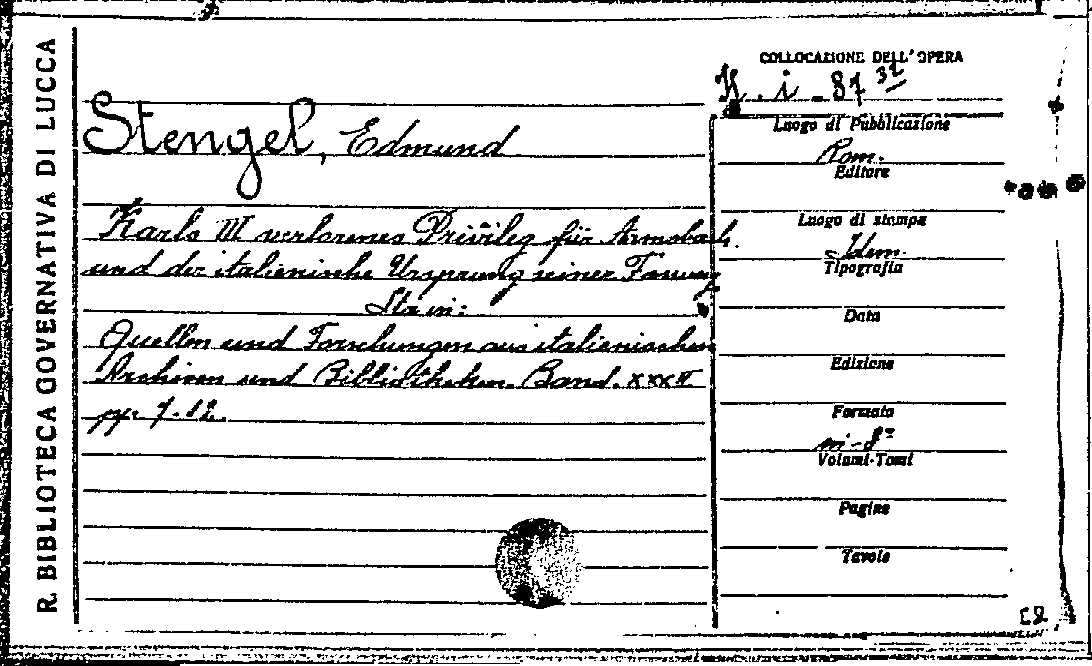 R BIBLIOTECA GOVERNATIVA DI LUCCA
Stengel, Edmund
Karls III verlorenes Privileg für
und der italienische Ursprung seiner Fassung
Sta in:
Quellen und Forschungen aus italienischen
Archiven und Bibliotheken. Band. XXXII
pp. 7-12.
COLLOCAZIONE DELL' OPERA
H. i - 87 32
Luogo di Pubblicazione
Rom.
Editore
Luogo di stampa
Idem.
Tipografia
Data
Edizione
Formato
in-8º
Volumi-Tomi
Pagine
Tavole